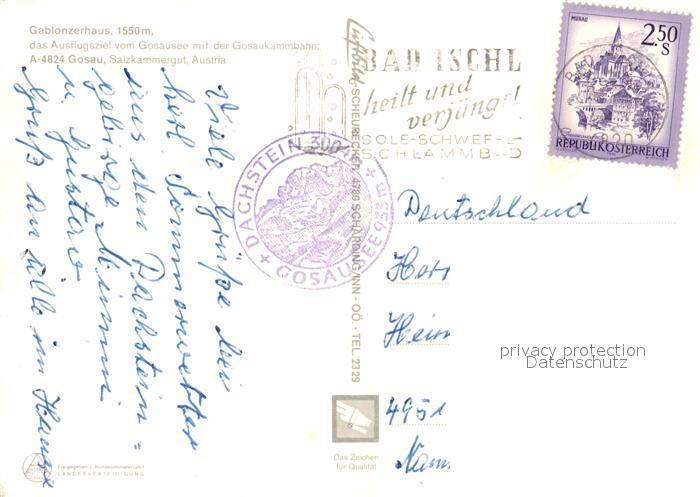 Gablonzerhaus, 1550m,
das Ausflugsziel vom Gosausee mit der Gosaukammbahn;
A-4824 Gosau, Salzkammergut, Austria
Viele Grüße bei
herl. Sommerwetter
aus den Dachstein=
gebirge Mimmi
u. Gustav
Gruß an alle im Hause
BAD ISCHL
heilt und
verjüngt!
SOLE-SCHWEFEL
SCHLAMMB-D
MURAU
2.50
S
REPUBLIK ÖSTERREICH
+ DACHSTEIN 3004 m +
GOSAUSEE 933 m
Luftbild SCHEURECKER, 4780 SCHÄRDING/INN - OÖ. - TEL. 2329
Deutschland
Herr
Hein
4951
privacy protection
Datenschutz
Das Zeichen
für Qualität
Freigegeben v. Bundesministerium f.
LANDESVERTEIDIGUNG